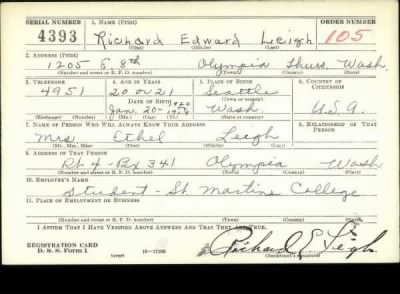 SERIAL NUMBER 1. NAME (Print) ORDER NUMBER
4393 Richard Edward Leigh 105
(First) (Middle) (Last)
2. ADDRESS (Print)
1205 E. 8th Olympia Thurs. Wash.
(Number and street or R. F. D. number) (Town) (County) (State)
3. TELEPHONE 4. AGE IN YEARS 5. PLACE OF BIRTH 6. COUNTRY OF CITIZENSHIP
4951 20 or 21 Seattle
DATE OF BIRTH (Town or county)
Jan. 20- Wash U.S.A.
(Mo.) (Day) (Yr.) (State or country)
7. NAME OF PERSON WHO WILL ALWAYS KNOW YOUR ADDRESS 8. RELATIONSHIP OF THAT PERSON
Mrs Ethel Leigh
(Mr., Mrs., Miss) (First) (Middle) (Last)
9. ADDRESS OF THAT PERSON
Rt 4 - Bx 341 Olympia Wash
(Number and street or R. F. D. number) (Town) (County) (State)
10. EMPLOYER'S NAME
Student - St Martins College
11. PLACE OF EMPLOYMENT OR BUSINESS
(Number and street or R. F. D. number) (Town) (County) (State)
I AFFIRM THAT I HAVE VERIFIED ABOVE ANSWERS AND THAT THEY ARE TRUE.
REGISTRATION CARD
D. S. S. Form 1 (over) Richard E Leigh
(Registrant's signature)